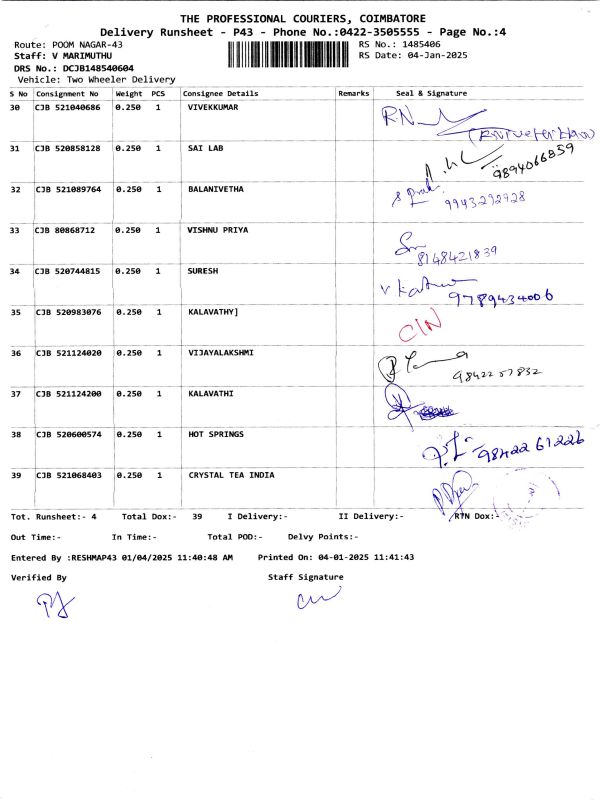 THE PROFESSIONAL COURIERS, COIMBATORE
Delivery Runsheet - P43 - Phone No.:0422-3505555 - Page No.:4
Route: POOM NAGAR-43 RS No.: 1485406
Staff: V MARIMUTHU RS Date: 04-Jan-2025
DRS No.: DCJB148540604
Vehicle: Two Wheeler Delivery
S No Consignment No Weight PCS Consignee Details Remarks Seal & Signature
30 CJB 521040686 0.250 1 VIVEKKUMAR RN
31 CJB 520858128 0.250 1 SAI LAB 9894066859
32 CJB 521089764 0.250 1 BALANIVETHA 9943292928
33 CJB 80868712 0.250 1 VISHNU PRIYA 8148421839
34 CJB 520744815 0.250 1 SURESH 9789434006
35 CJB 520983076 0.250 1 KALAVATHY] C/N
36 CJB 521124020 0.250 1 VIJAYALAKSHMI 9842257832
37 CJB 521124200 0.250 1 KALAVATHI
38 CJB 520600574 0.250 1 HOT SPRINGS 98422 61226
39 CJB 521068403 0.250 1 CRYSTAL TEA INDIA
Tot. Runsheet:- 4 Total Dox:- 39 I Delivery:- II Delivery:- RTN Dox:-
Out Time:- In Time:- Total POD:- Delvy Points:-
Entered By :RESHMAP43 01/04/2025 11:40:48 AM Printed On: 04-01-2025 11:41:43
Verified By Staff Signature